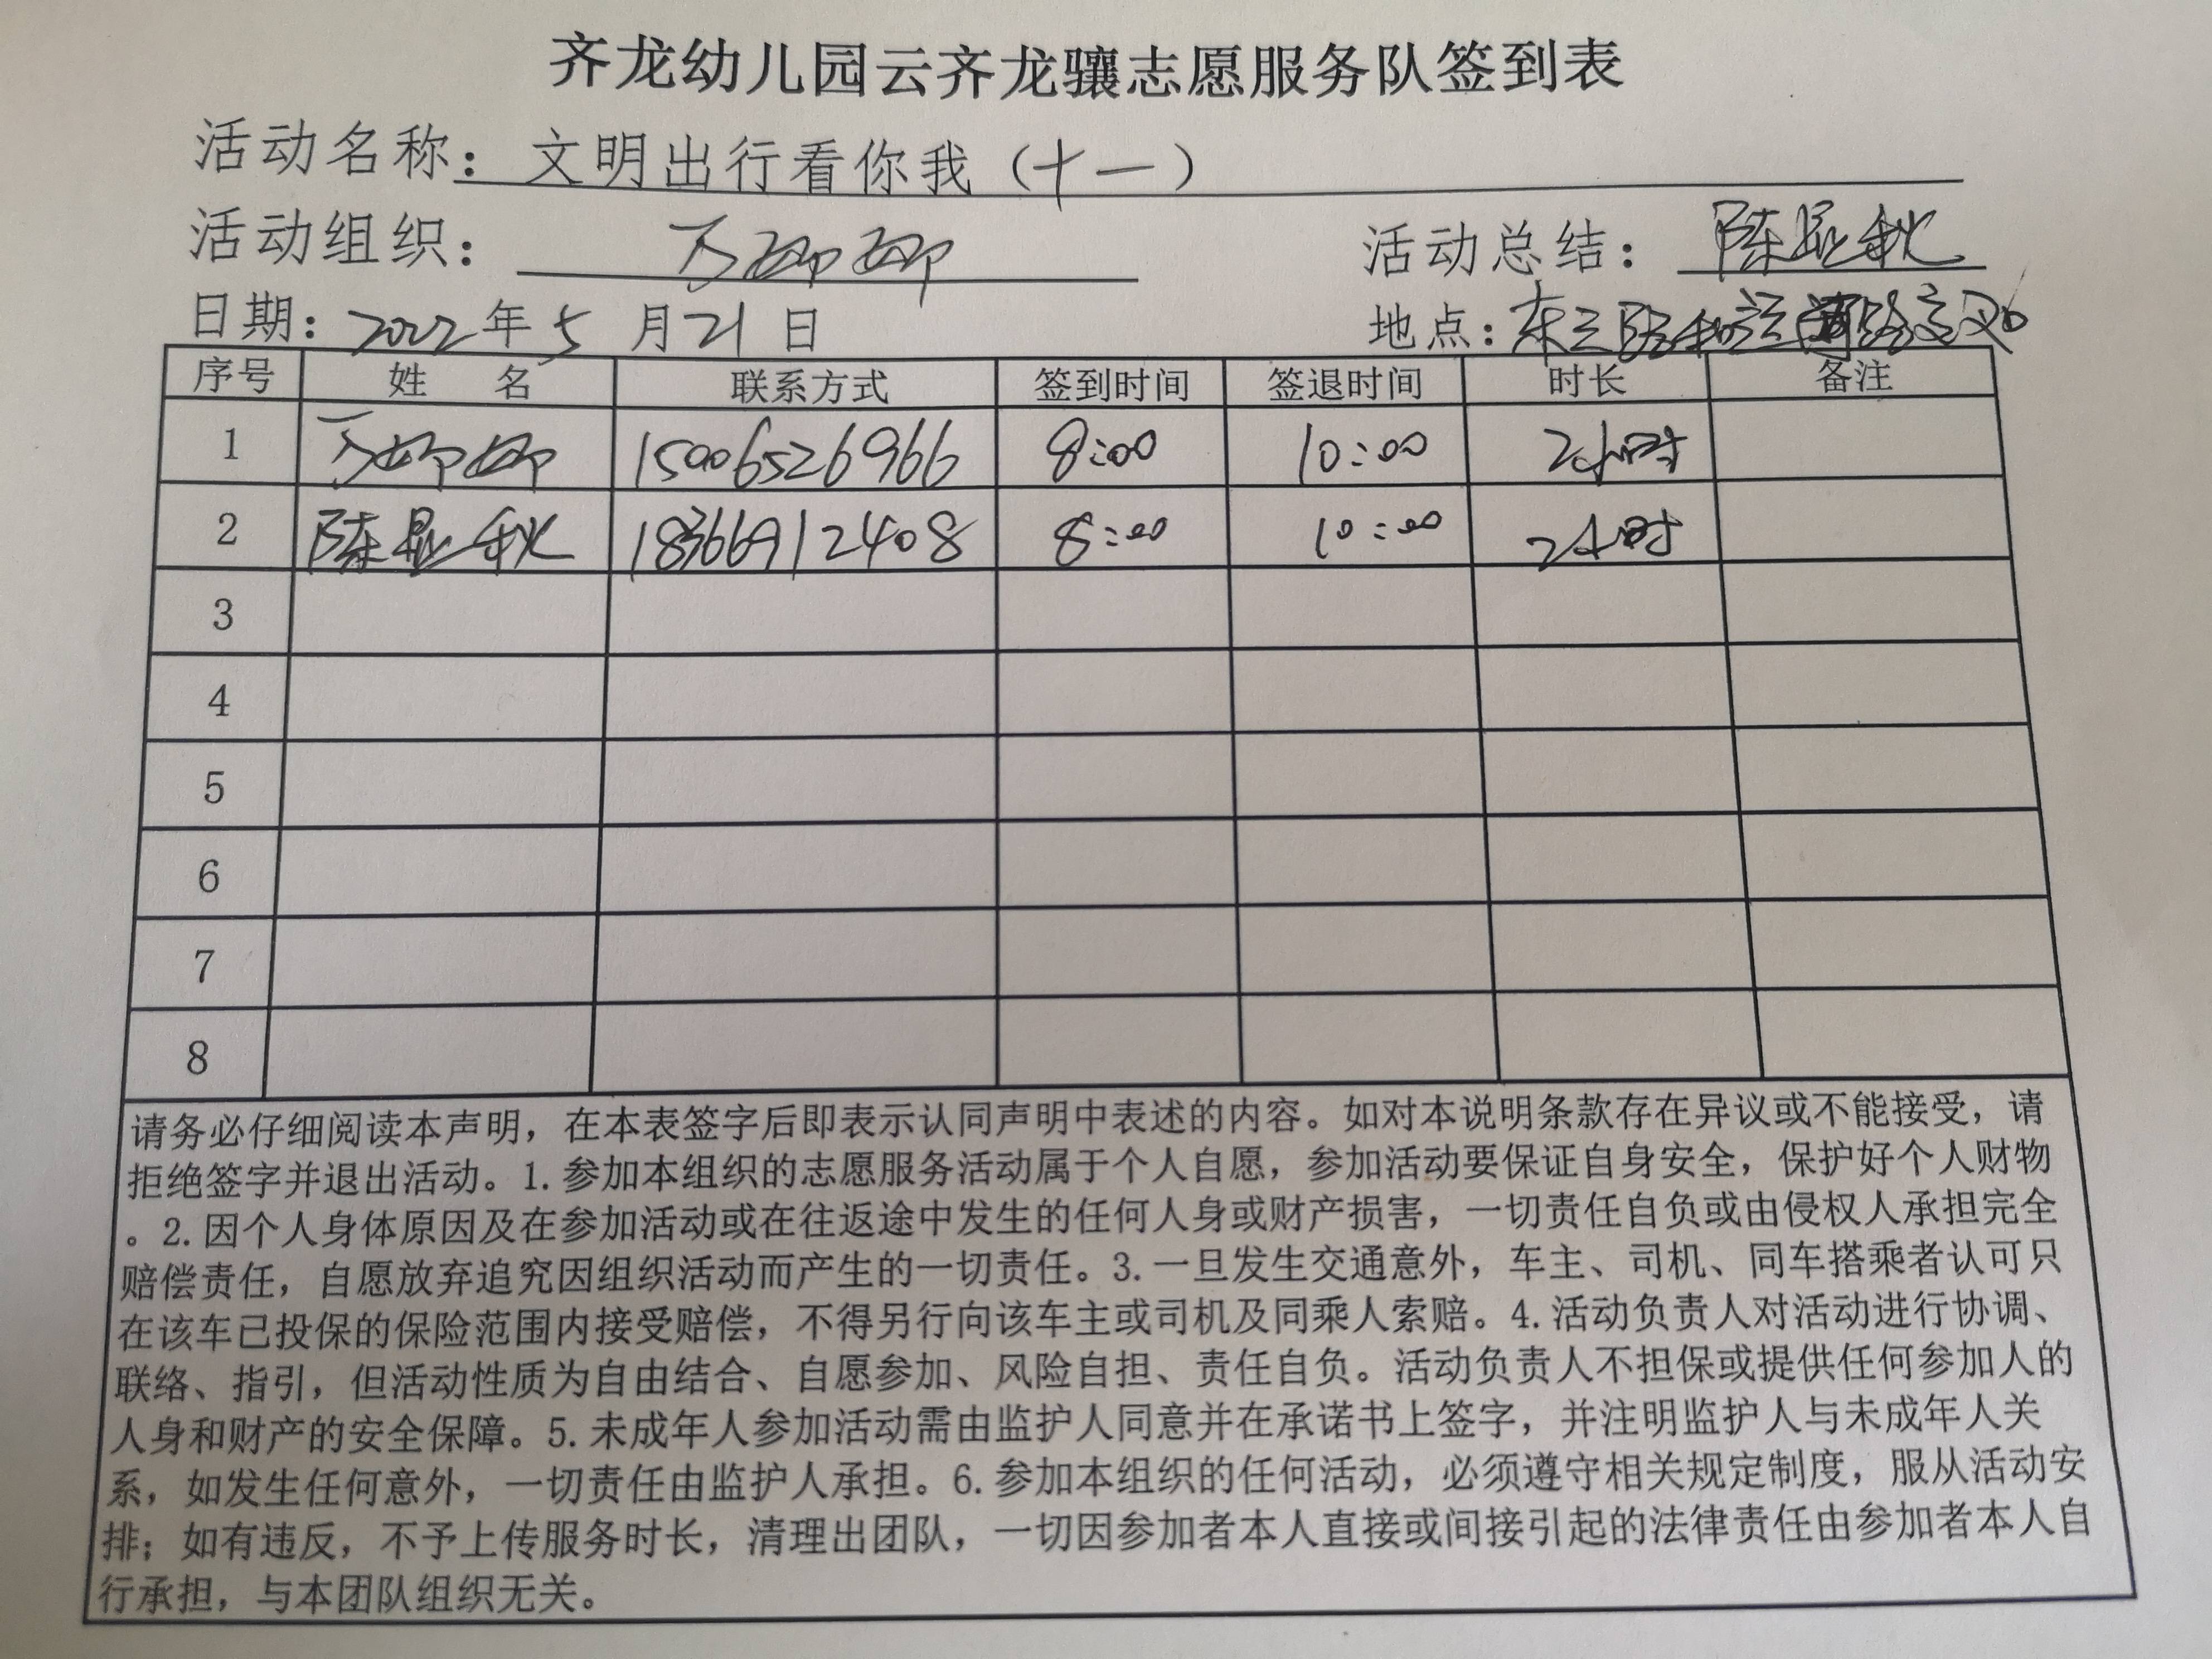 齐龙幼儿园云齐龙骧志愿服务队签到表
活动名称：文明出行看你我（十一）
活动组织：万娜娜 活动总结：陈显秋
日期：2022年5月21日 地点：东三路和 路交叉口
序号 姓 名 联系方式 签到时间 签退时间 时长 备注
1 万娜娜 15006526966 8:00 10:00 2小时
2 陈显秋 18366912408 8:00 10:00 2小时
3
4
5
6
7
8
请务必仔细阅读本声明，在本表签字后即表示认同声明中表述的内容。如对本说明条款存在异议或不能接受，请
拒绝签字并退出活动。1.参加本组织的志愿服务活动属于个人自愿，参加活动要保证自身安全，保护好个人财物
。2.因个人身体原因及在参加活动或在往返途中发生的任何人身或财产损害，一切责任自负或由侵权人承担完全
赔偿责任，自愿放弃追究因组织活动而产生的一切责任。3.一旦发生交通意外，车主、司机、同车搭乘者认可只
在该车已投保的保险范围内接受赔偿，不得另行向该车主或司机及同乘人索赔。4.活动负责人对活动进行协调、
联络、指引，但活动性质为自由结合、自愿参加、风险自担、责任自负。活动负责人不担保或提供任何参加人的
人身和财产的安全保障。5.未成年人参加活动需由监护人同意并在承诺书上签字，并注明监护人与未成年人关
系，如发生任何意外，一切责任由监护人承担。6.参加本组织的任何活动，必须遵守相关规定制度，服从活动安
排；如有违反，不予上传服务时长，清理出团队，一切因参加者本人直接或间接引起的法律责任由参加者本人自
行承担，与本团队组织无关。